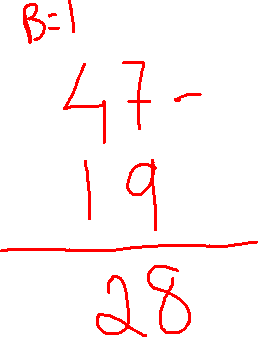 B=1
47-
19
28